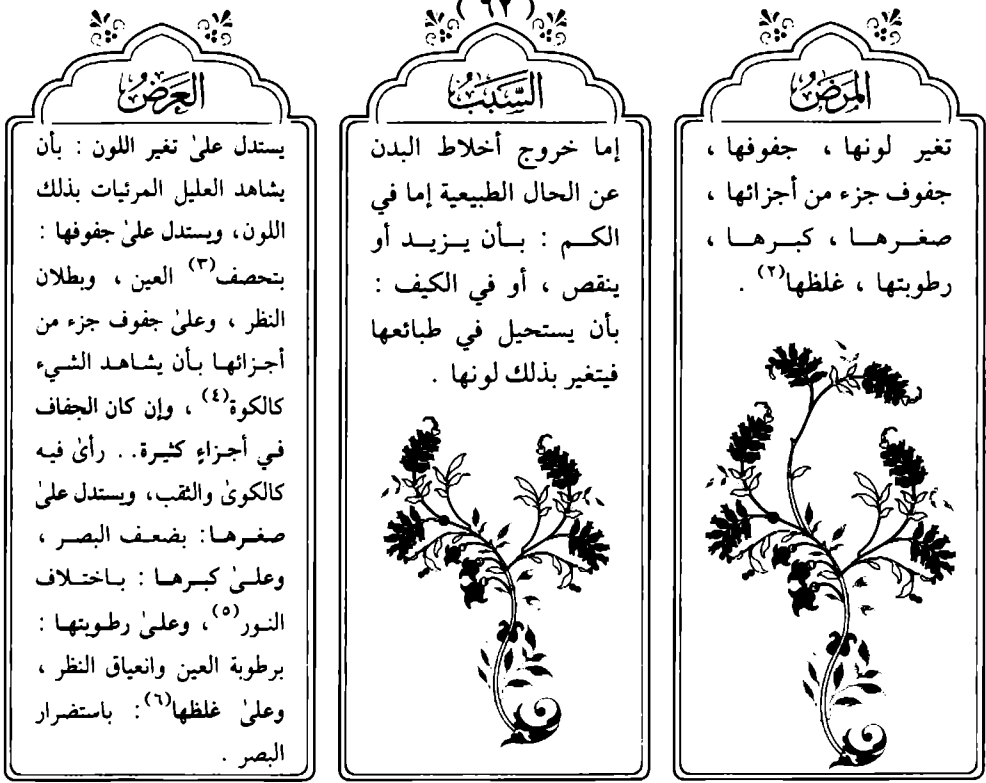 ( ٦٢ )
المَرَضُ
تغير لونها ، جفوفها ،
جفوف جزء من أجزائها ،
صغـرهـا ، كبـرهـا ،
رطوبتها ، غلظها(٢) .
السَّبَبُ
إما خروج أخلاط البدن
عن الحال الطبيعية إما في
الكـم : بـأن يـزيـد أو
ينقص ، أو في الكيف :
بأن يستحيل في طبائعها
فيتغير بذلك لونها .
العَرَضُ
يستدل علىٰ تغير اللون : بأن
يشاهد العليل المرئيات بذلك
اللون، ويستدل علىٰ جفوفها :
بتحصف(٣) العين ، وبطلان
النظر ، وعلىٰ جفوف جزء من
أجـزائهـا بـأن يشـاهـد الشـيء
كالكوة(٤) ، وإن كان الجفاف
فـي أجـزاءٍ كثيـرة.. رأىٰ فيـه
كالكوىٰ والثقب، ويستدل علىٰ
صغـرهـا: بضعـف البصـر ،
وعلـىٰ كبـرهـا : بـاختـلاف
النـور(٥)، وعلـىٰ رطـوبتهـا :
برطوبة العين وانعياق النظر ،
وعلىٰ غلظها(٦): باستضرار
البصر .